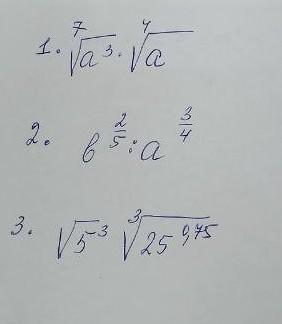 1. ⁷√a³ · ⁴√a
2. в^(2/5) : a^(3/4)
3. √5³ ³√25^0,75